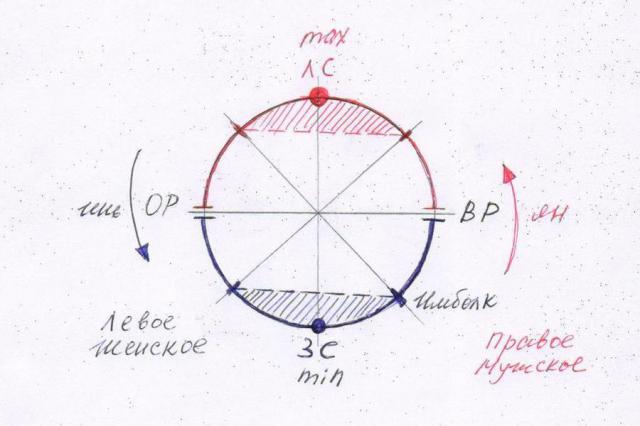 max
ЛС
инь
ОР
ВР
ян
Имболк
Левое
Женское
ЗС
min
Правое
Мужское